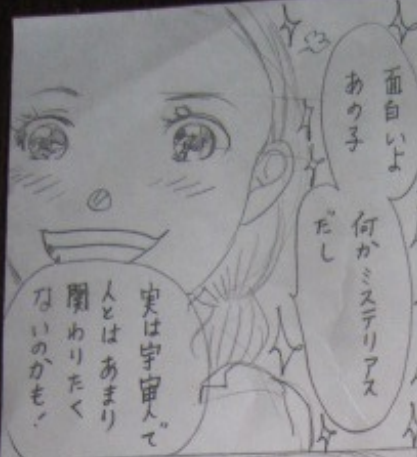 面白いよ
あの子
何かミステリアス
だし
実は宇宙人で
人とはあまり
関わりたく
ないのかも!